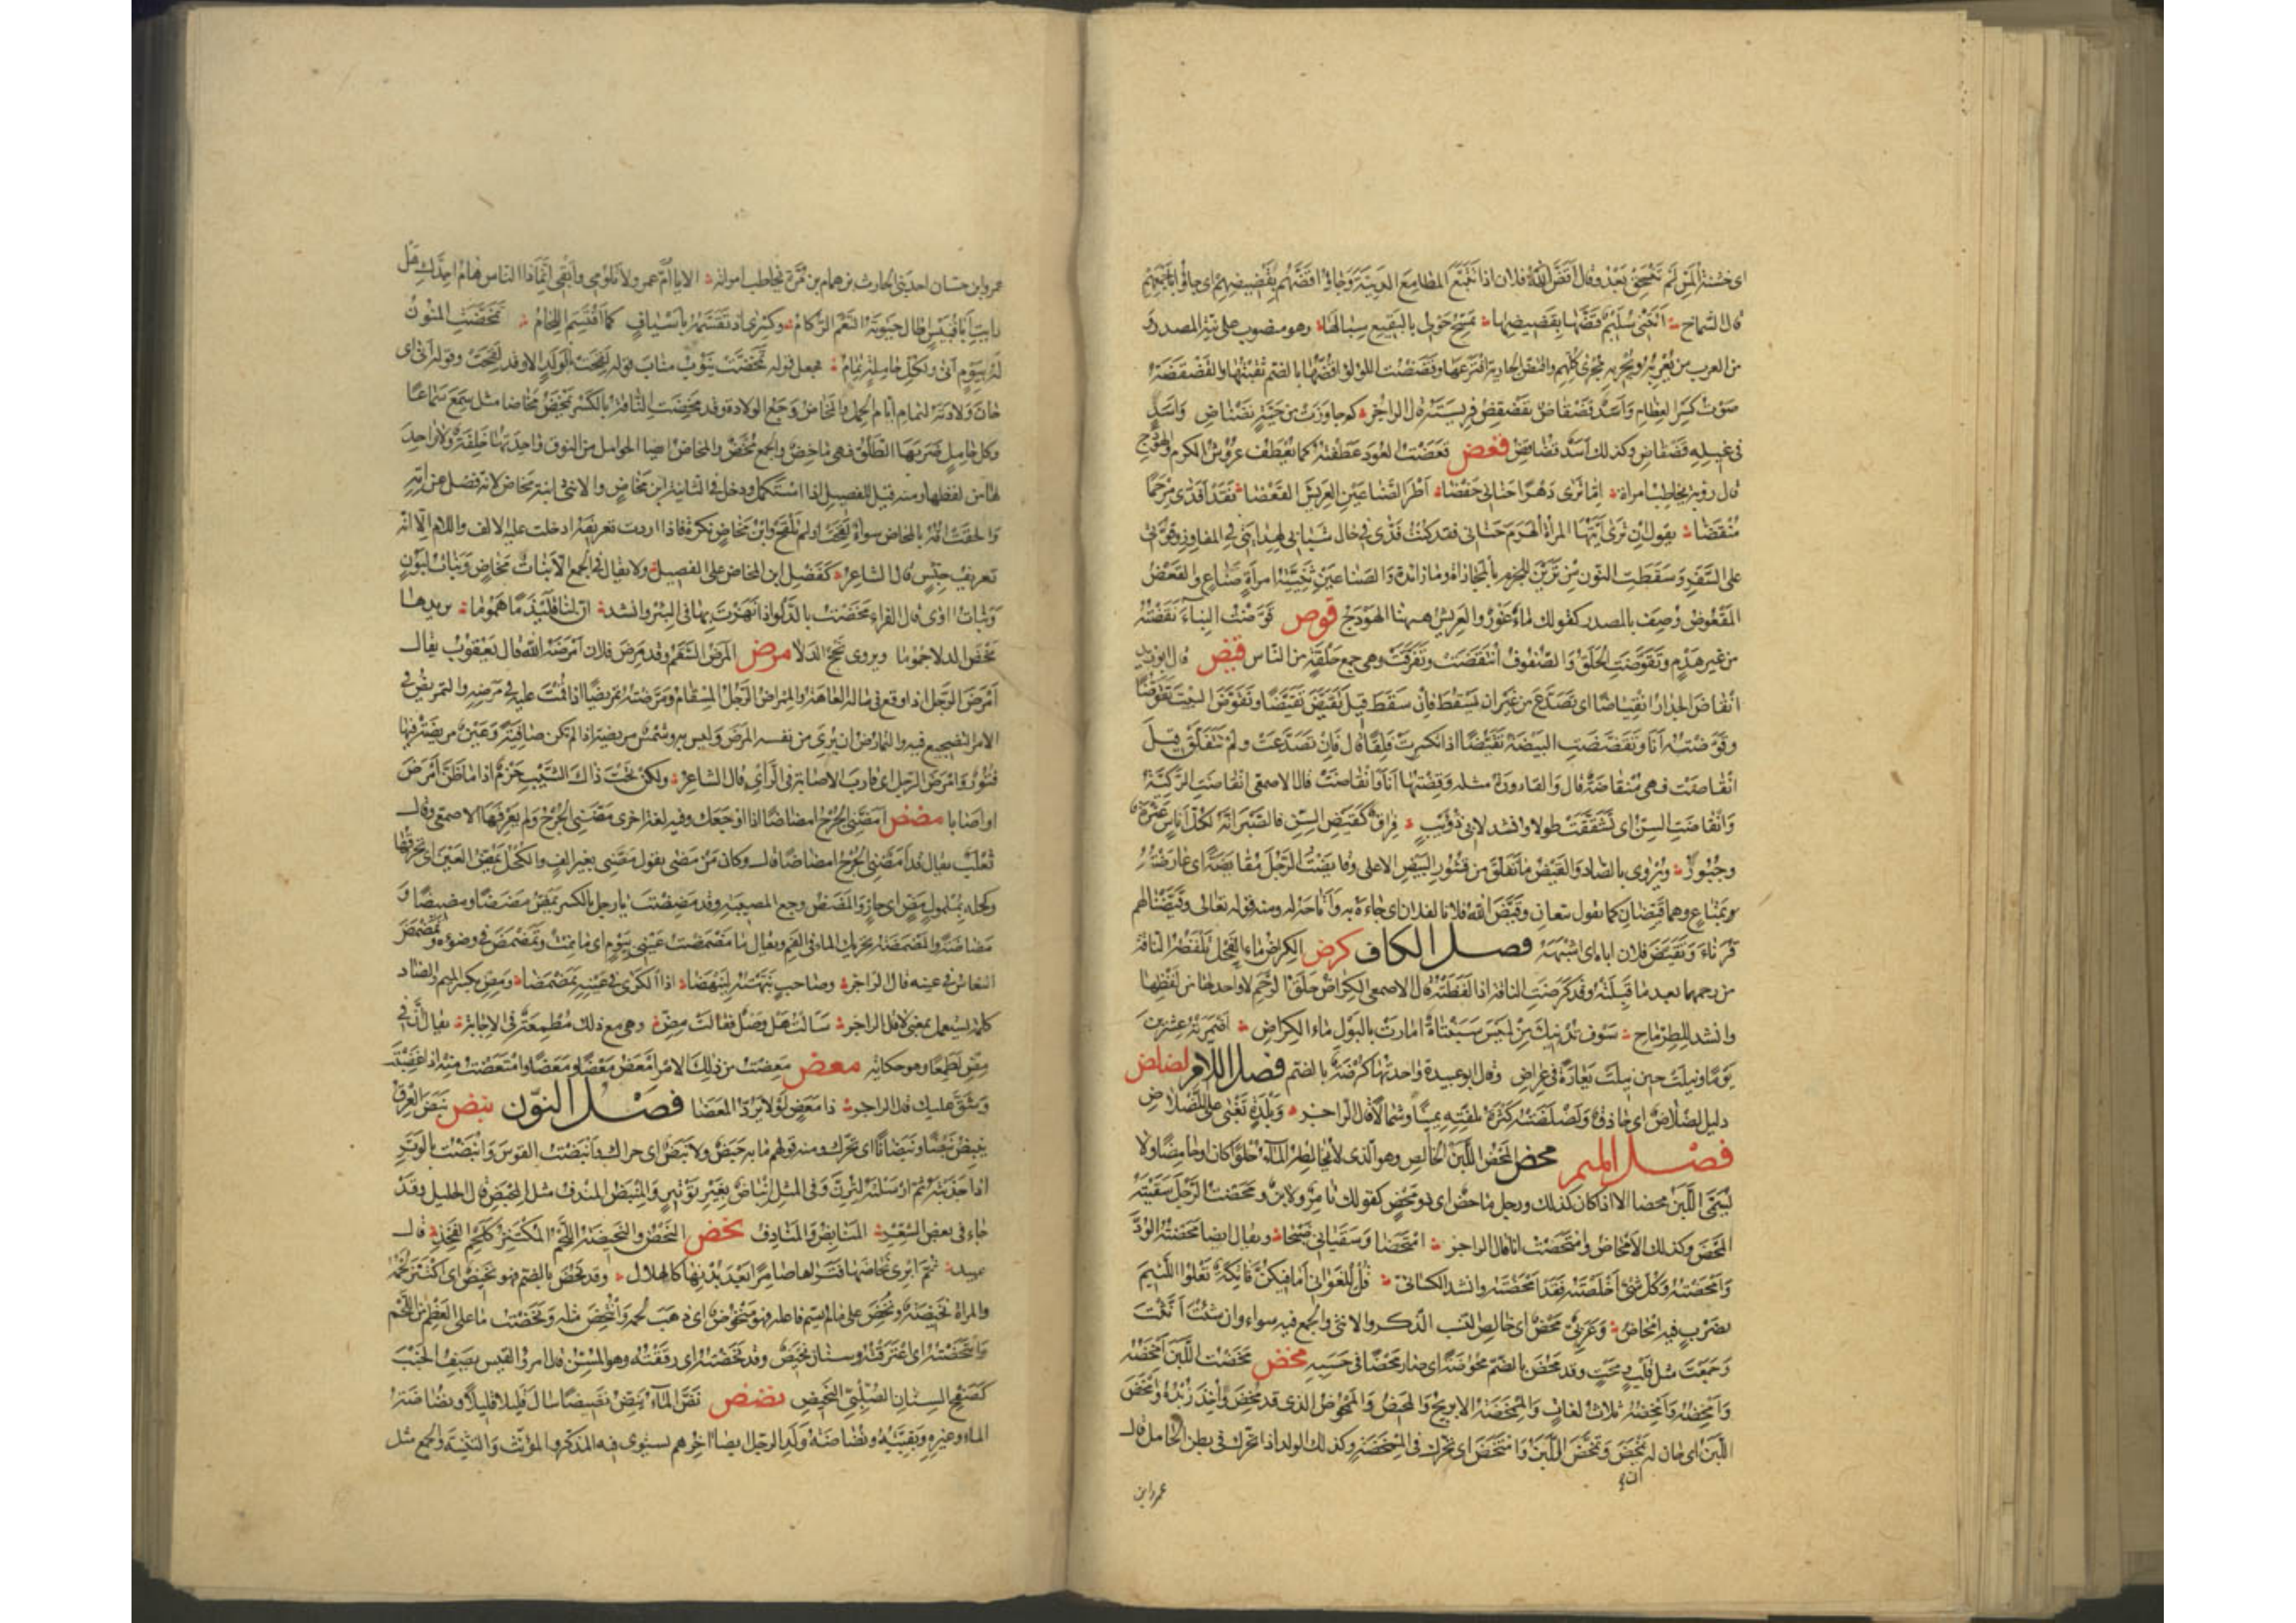 اى خشنة لمن لم تسحق بعد وقال اقتض الله فلان اذا تتبع المطامع الدنيئة وجاؤا قضهم بقضيضهم اى جاؤا باجمعهم
قال الشماخ اتتنى سليم قضها بقضيضها تمسح حولى بالبقيع سبالها وهو منصوب على نية المصدر و
من العرب من يعربه ويجريه مجرى كلهم واقتض الجارية افترعها وقضضت اللؤلؤة اقضها بالضم ثقبتها والقضقضة
صوت كسر العظام واسد قضقاض يقضقض فريسته قال الراجز كم جاوزت من حية نضناض واسد
فى غيله قضقاض وكذلك اسد قضاقض قعض قعضت العود عطفته كما تعطف عروش الكرم والهودج
قال رؤبة يخاطب امراة اما ترى دهرا حنانى حفضا اطر الصناعين العريش القعضا فقد افدى مرجما
منقضا يقول ان ترى ايتها المراة الهرم حنانى فقد كنت افدى فى حال شبابى لهدايتى فى المفاوز وقوتى
على السفر وسقطت النون من ترين للجزم بالمجازاة وما زائدة والصناعين تثنية امراة صناع والقعض
المقعوض وصف بالمصدر كقولك ماء غور والعريش ههنا الهودج قوض قوضت البناء نقضته
من غير هدم وتقوضت الحلق والصفوف انتقضت وتفرقت وهى جمع حلقة من الناس قيض قال ابو زيد
انقاض الجدار انقياضا اى تصدع من غير ان يسقط فان سقط قيل تقيض تقيضا وتقوض البيت تقوضا
وقوضته انا وتقضضت البيضة تقيضا اذا تكسرت فلقا قال فان تصدعت ولم تتفلق قيل
انقاضت فهى منقاضة قال والقارورة مثله وقضتها انا فانقاضت قال الاصمعى انقاضت الركية
وانقاضت السن اى تشققت طولا وانشد لابى ذؤيب فراق كقيض السن فالصبر انه لكل اناس عثرة
وجبور ويروى بالصاد والقيض ما تفلق من قشور البيض الاعلى وقايضت الرجل مقايضة اى عارضته
بمتاع وهما قيضان كما يقول بيعان وقيض الله فلانا لفلان اى جاءه به واتاحه له ومنه قوله تعالى وقيضنا لهم
قرناء وتقيض فلان اباه اى اشبهه فصل الكاف كرض الكراض ماء الفحل تلفظه الناقة
من رحمها بعد ما قبلته وقد كرضت الناقة اذا لفظته قال الاصمعى الكراض حلق الرحم لا واحد لها من لفظها
وانشد للطرماح سوف تدنيك من لميس سبنتاة امارت بالبول ماء الكراض اضمرته عشرين
يوما ونيلت حين نيلت يعارة فى عراض وقال ابو عبيدة واحدتها كرضة بالضم فصل اللام لضلض
دليل لضلاض اى حاذق ولضلضته كثرة تلفته يمينا وشمالا قال الراجز وبلدة تغبى على اللضلاض
فصل الميم محض المحض اللبن الخالص وهو الذى لا يخالطه الماء حلوا كان او حامضا ولا
يسمى اللبن محضا الا اذا كان كذلك ورجل ماحض اى ذو محض كقولك تامر ولابن ومحضت الرجل سقيته
المحض وكذلك الامحاض وامتحضت انا قال الراجز امتحضا وسقيانى ضيحا ويقال ايضا محضته الود
وامحضته وكل شئ اخلصته فقد امحضته وانشد الكسائى قل للغوانى اما فيكن فاتكة تعلو اللئيم
بضرب فيه امحاض وعربى محض اى خالص النسب الذكر والانثى والجمع فيه سواء وان شئت انثت
وجمعت مثل قلب وبحت وقد محض بالضم محوضة اى صار محضا فى حسبه مخض مخضت اللبن امخضه
وامخضه وامخضه ثلاث لغات والممخضة الابريج والمخيض والممخوض الذى قد مخض واخذ زبده وامخض
اللبن اى حان له ان يمخض وتمخض اللبن وامتخض اى تحرك فى الممخضة وكذلك الولد اذا تحرك فى بطن الحامل قال
عمرو ابن
عمرو ابن حسان احد بنى الحارث بن همام بن مرة يخاطب امراته الا يا ام عمرو لا تلومى وابقى انما ذا الناس هام اجدك هل
رايت ابا قبيس اطال حيوته النعم الركام وكسرى اذ تقسمه بنوه باسياف كما اقتسم اللحام تمخضت المنون
له بيوم انى ولكل حاملة تمام فجعل قوله تمخضت ينوب مناب قوله لقحت بولد الا وقد لقحت وقوله انى اى
حان ولادته لتمام ايام الحمل والمخاض وجع الولادة وقد مخضت الناقة بالكسر تمخض مخاضا مثل سمع سماعا
وكل حامل ضربها الطلق فهى ماخض والجمع مخض والمخاض ايضا الحوامل من النوق واحدتها خلفة ولا واحد
لها من لفظها ومنه قيل للفصيل اذا استكمل ودخل فى الثانية ابن مخاض والانثى ابنة مخاض لانه فصل عن امه
والحقت امه بالمخاض سواء لقحت او لم تلقح وابن مخاض نكرة فاذا اردت تعريفه ادخلت عليه الالف واللام الا انه
تعريف جنس قال الشاعر كفضل ابن المخاض على الفصيل ولا يقال فى الجمع الا بنات مخاض وبنات لبون
وبنات اوى قال الفراء مخضت بالدلو اذا نهزت بها فى البئر وانشد ان لنا قليذما هموما يزيدها
مخض الدلا جموما ويروى مخج الدلا مرض المرض السقم وقد مرض فلان امرضه الله قال يعقوب يقال
امرض الرجل اذا وقع فى ماله العاهة والممراض الرجل المسقام ومرضته تمريضا اذا قمت عليه فى مرضه والتمريض فى
الامر التضجيع فيه والتمارض ان يرى من نفسه المرض وليس به وشمس مريضة اذا لم تكن صافية وعين مريضة فيها
فتور وامرض الرجل اى قارب الاصابة فى الراى قال الشاعر ولكن تحت ذاك الشيب حزم اذا ما ظن امرض
او اصابا مضض امضنى الجرح امضاضا اذا اوجعك وفيه لغة اخرى مضنى الجرح ولم يعرفها الاصمعى وقال
ثعلب يقال قد امضنى الجرح امضاضا قال وكان من مضى يقول مضنى بغير الف والكحل يمض العين اى يحرقها
وكحله بملمول مض اى حار والمضض وجع المصيبة وقد مضضت يا رجل بالكسر تمض مضضا ومضيضا و
مضاضة والمضمضة تحريك الماء فى الفم ويقال ما مضمضت عينى بنوم اى ما نمت وتمضمض فى وضوئه وتمضمض
النعاس فى عينه قال الراجز وصاحب نبهته لينهضا اذا الكرى فى عينه تمضمضا ومض بكسر الميم والضاد
كلمة يستعمل بمعنى لا قال الراجز سالت هل وصل فقالت مض وهى مع ذلك مطمعة فى الاجابة يقال ان فى
مض لطمعا وهو حكاية معض معضت من ذلك الامر امعض معضا ومعضا وامتعضت منه اذا غضبت
وشق عليك قال الراجز ذا معض لولا يرد المعضا فصل النون نبض نبض العرق
ينبض نبضا ونبضانا اى تحرك ومنه قولهم ما به حبض ولا نبض اى حراك وانبضت القوس وانبضت بالوتر
اذا جذبته ثم ارسلته لترن وفى المثل انباض بغير توتير والمنبض المندف مثل المحبض قال الخليل وقد
جاء فى بعض الشعر المنابض والمنادف نحض النحض والنحيضة اللحم المكتنز كلحم الفخذ قال
عبيد ثم ابرى نحاضها فتراها ضامرا بعد بدنها كالهلال وقد نحض بالضم فهو نحيض اى اكتنز لحمه
والمراة نحيضة ونحض على ما لم يسم فاعله فهو منحوض اى ذهب لحمه وانتحض مثله ونحضت ما على العظم من اللحم
وانتحضته اى اعترقته وسنان نحيض وقد نحضته اى رققته وهو المسن قال امرؤ القيس يصف الجنب
كصفح السنان الصلبى النحيض نضض نض الماء ينض نضيضا سال قليلا قليلا ونضاضة
الماء وغيره وبقيته ونضاضة ولد الرجل ايضا اخرهم يستوى فيه المذكر والمؤنث والتثنية والجمع مثل